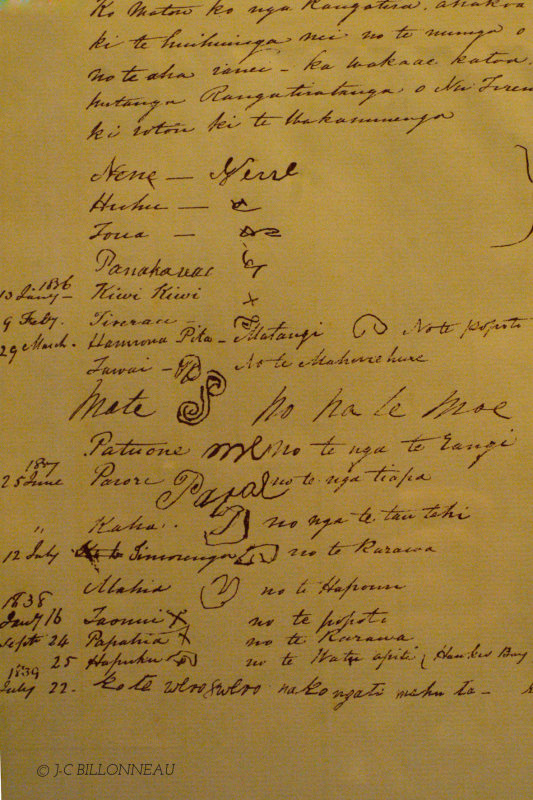 Ko matou ko nga Rangatira, ahakoa
ki te huihuinga nei no te nuinga o
no te aha ranei - ka wakaae katoa
hutanga Rangatiratanga o Nu Tiren
ki roto ki te Wakaminenga
Nene — Nerre
Huhu —
Tona —
Panakareao
1836
13 Jany — Kiwi Kiwi
9 Feby. Tirarau -
29 March. Hamiora Pita - Matangi No te popoto
Tawai - No te Mahurehure
Mate no na te Moe
Patuone no te nga te Rangi
1837
25 June Parore Parore no te nga tiapa
" Kaha.. no nga te tau tehi
12 July Te Morenga no te Rarawa
Mahia no te Hapouri
1838
Jany 16 Taonui x no te popoto
Septr 24 Papahia x no te Rarawa
25 Hapuku no te Watu apiti (Hawkes Bay
1839
July 22. ko te werowero na ko ngati mahu ta-
© J-C BILLONNEAU